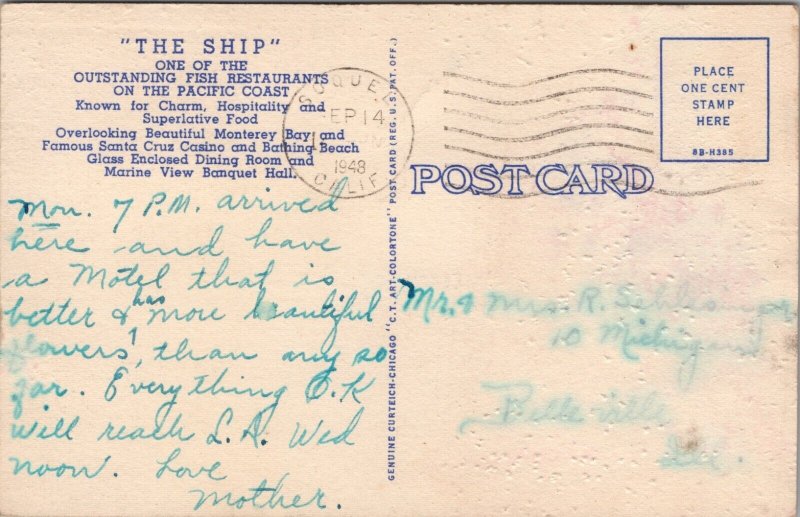 "THE SHIP"
ONE OF THE
OUTSTANDING FISH RESTAURANTS
ON THE PACIFIC COAST
Known for Charm, Hospitality and
Superlative Food
Overlooking Beautiful Monterey Bay and
Famous Santa Cruz Casino and Bathing Beach
Glass Enclosed Dining Room and
Marine View Banquet Hall.
Mon. 7 P.M. arrived
here and have
a Motel that is
better & has more beautiful
flowers, than any so
far. Everything O.K
will reach L.A. Wed
noon. Love
Mother.
GENUINE CURTEICH-CHICAGO "C.T. ART-COLORTONE" POST CARD (REG. U.S. PAT. OFF.)
SOQUEL
SEP 14
1948
CALIF
PLACE
ONE CENT
STAMP
HERE
8B-H385
POST CARD
Mr. & Mrs. R.
10 Michigan
Belleville
Ill.